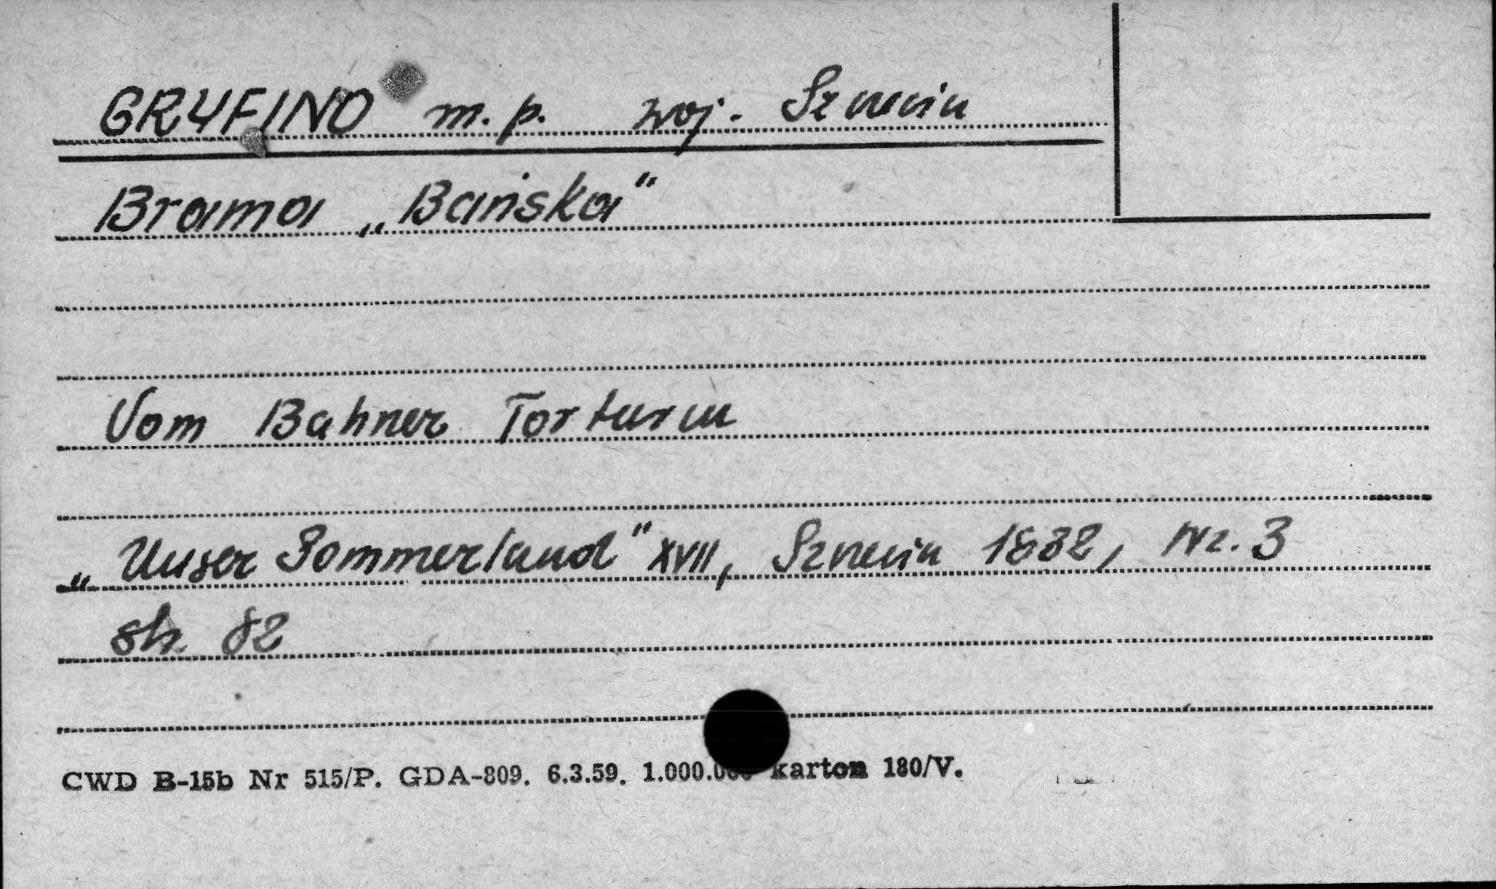 GRYFINO m. p. woj. Szczecin
Brama „Bańska"
Vom Bahner Torturm
„Unser Pommerland" XVII, Szczecin 1932, Nr. 3
str. 82
CWD B-15b Nr 515/P. GDA-809. 6.3.59. 1.000.000 karton 180/V.